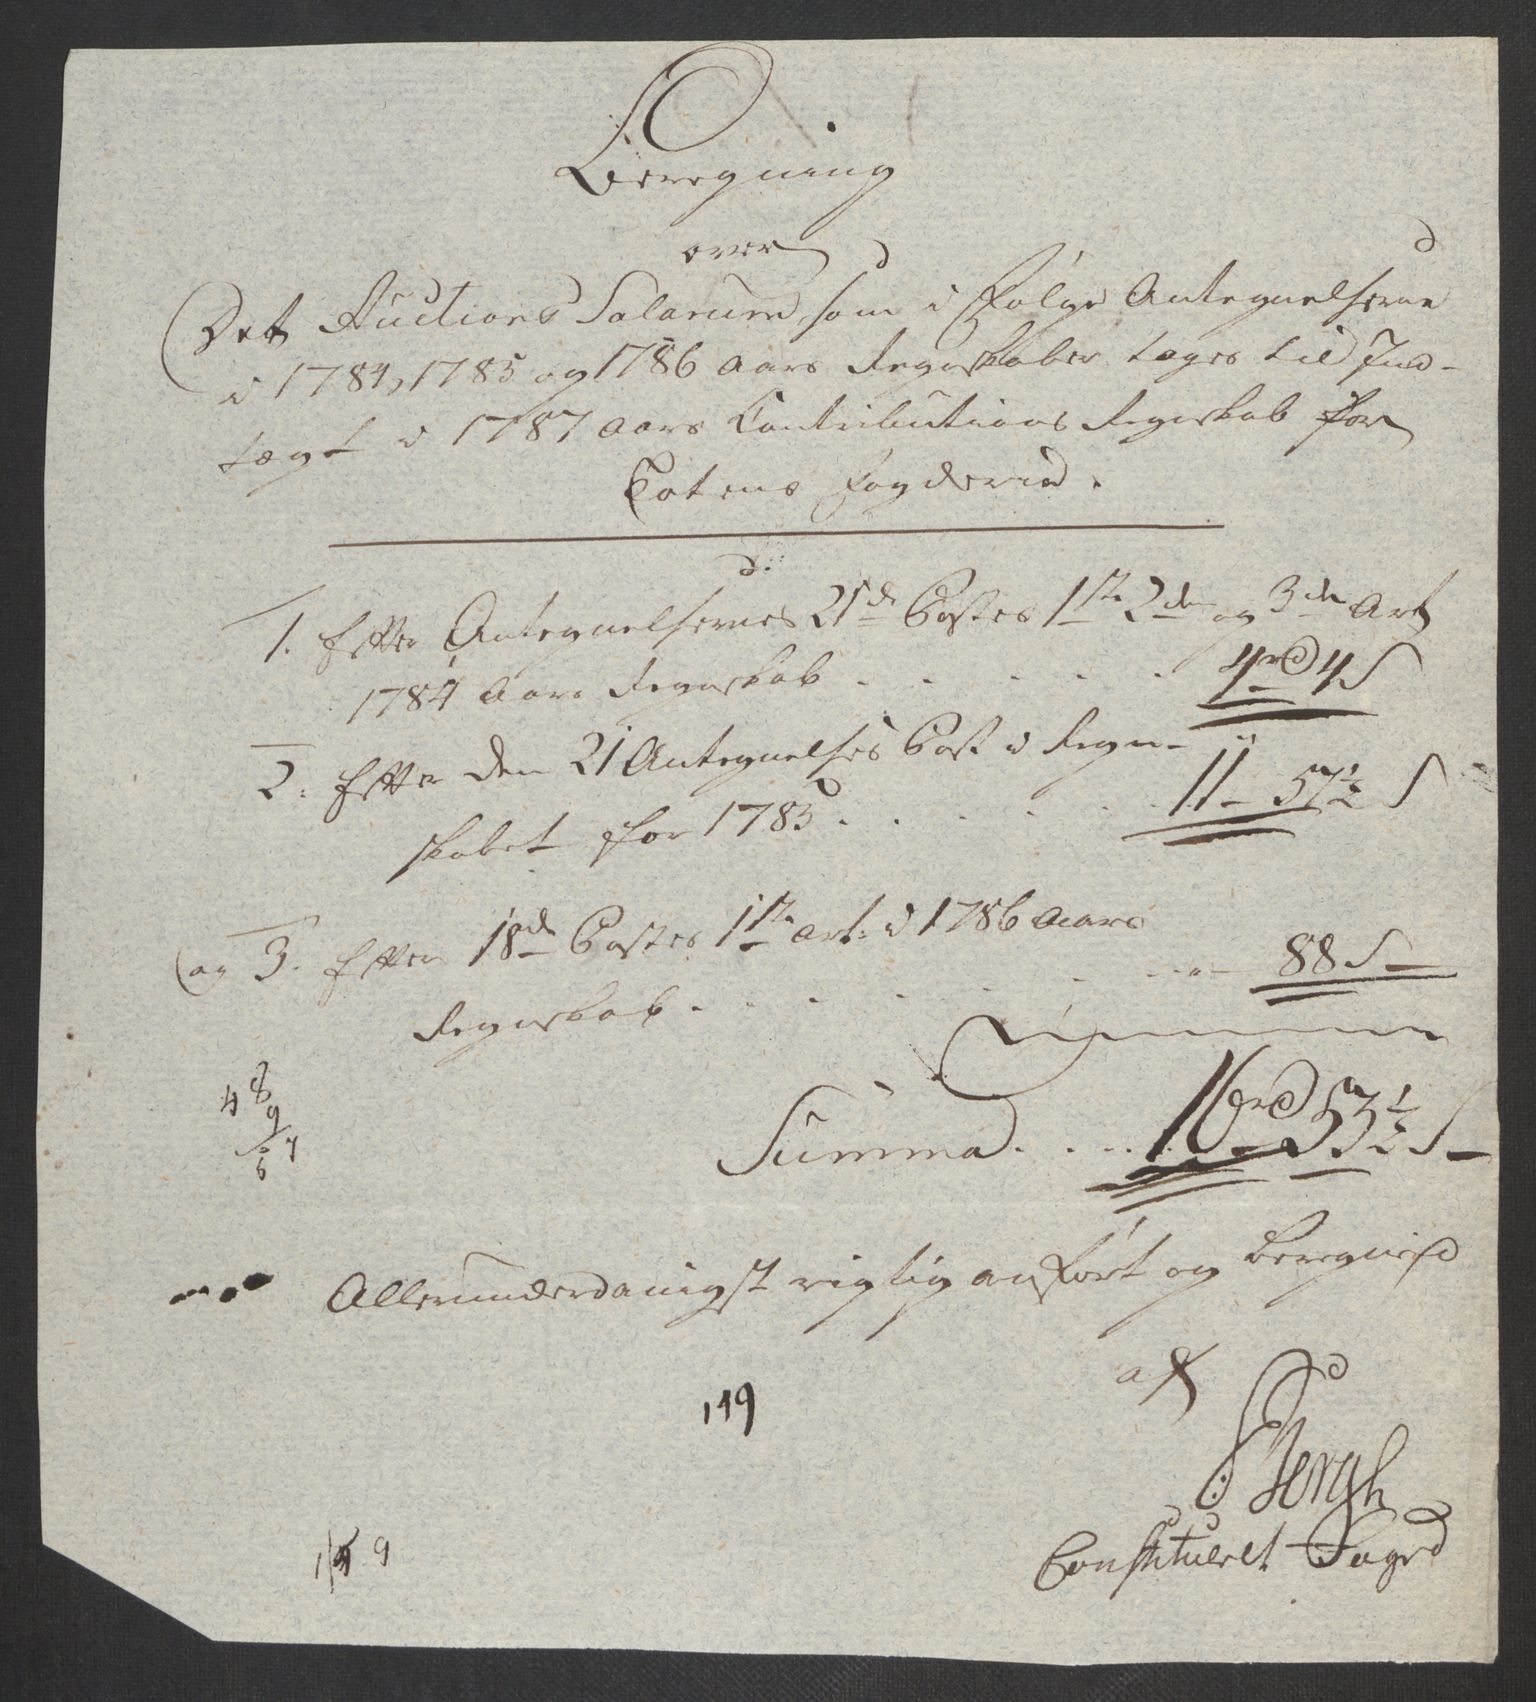 Beregning
over
Det Auctions Salarium, som i Følge Antegnelserne
i 1784, 1785 og 1786 Aars Regnskaber tages til Ind-
tægt i 1787 Aars Contributions Regnskab for
Totens Fogderie.
1. Efter Antegnelsernes 21de Postes 1te 2den og 3die Art i
1784 Aars Regnskab . . . . . 4rd 4 S
2. Efter den 21 Antegnelses Post i Regn-
skabet for 1785 . . . . . 11 - 57½ S
og 3. Efter 18de Postes 1te Art: i 1786 Aars
Regnskab . . . . . 88 S
Summa . . . . 16rd 53½ S
48
9
57
6
Allerunderdanigst rigtig anført og beregnet
af
149
Bergh
Constitueret Foged
149